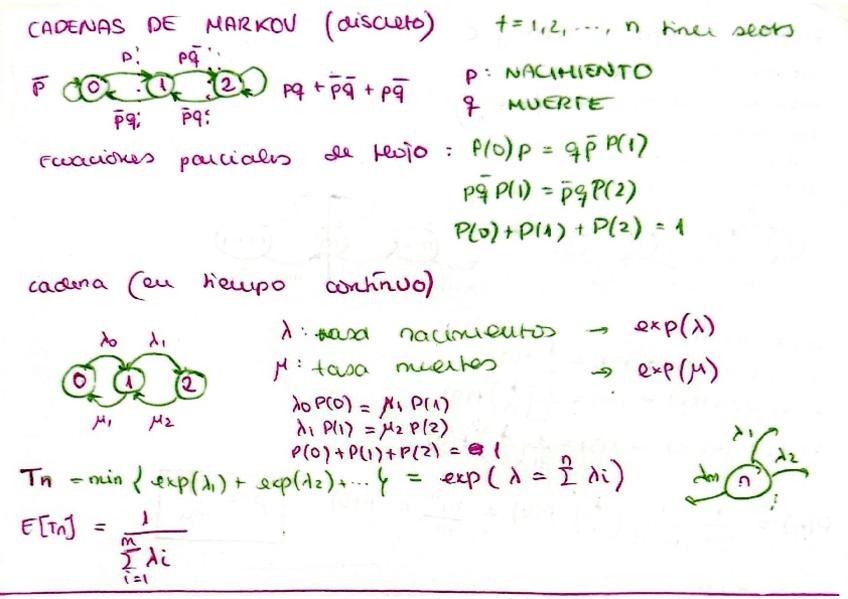 CADENAS DE MARKOV (discreto) t = 1,2, ..., n
p̄ 0 p 1 pq̄ 2 pq + p̄q̄ + pq̄
p̄q p̄q
p: NACIMIENTO
q MUERTE
Ecuaciones parciales de flujo : P(0)p = qp̄ P(1)
pq̄ P(1) = p̄q P(2)
P(0)+P(1)+P(2) = 1
cadena (en tiempo contínuo)
λ0 λ1
0 1 2
μ1 μ2
λ: tasa nacimientos → exp(λ)
μ: tasa muertes → exp(μ)
λ0 P(0) = μ1 P(1)
λ1 P(1) = μ2 P(2)
P(0)+P(1)+P(2) = 1
Tn = min { exp(λ1) + exp(λ2)+... } = exp( λ = Σ^n λi )
λ1
λ2
λm n
E[Tn] = 1 / Σ_{i=1}^{m} λi